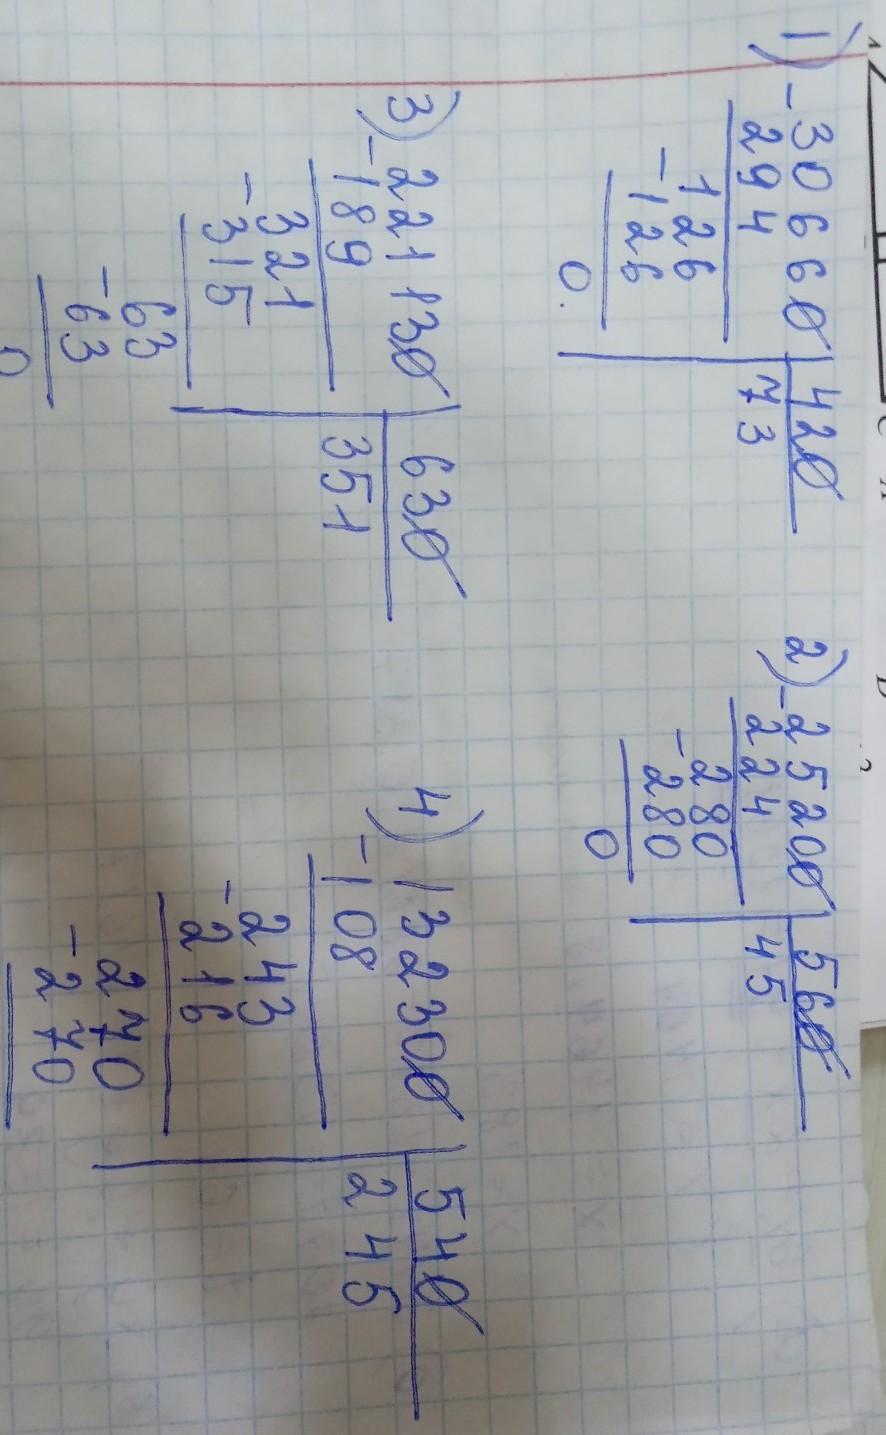 1) -30660 | 420
294 | 73
126
-126
0.
2) -25200 | 560
-224 | 45
280
-280
0
3) 221130 | 630
-189 | 351
321
-315
63
-63
0
4) 132300 | 540
-108 | 245
243
-216
270
-270